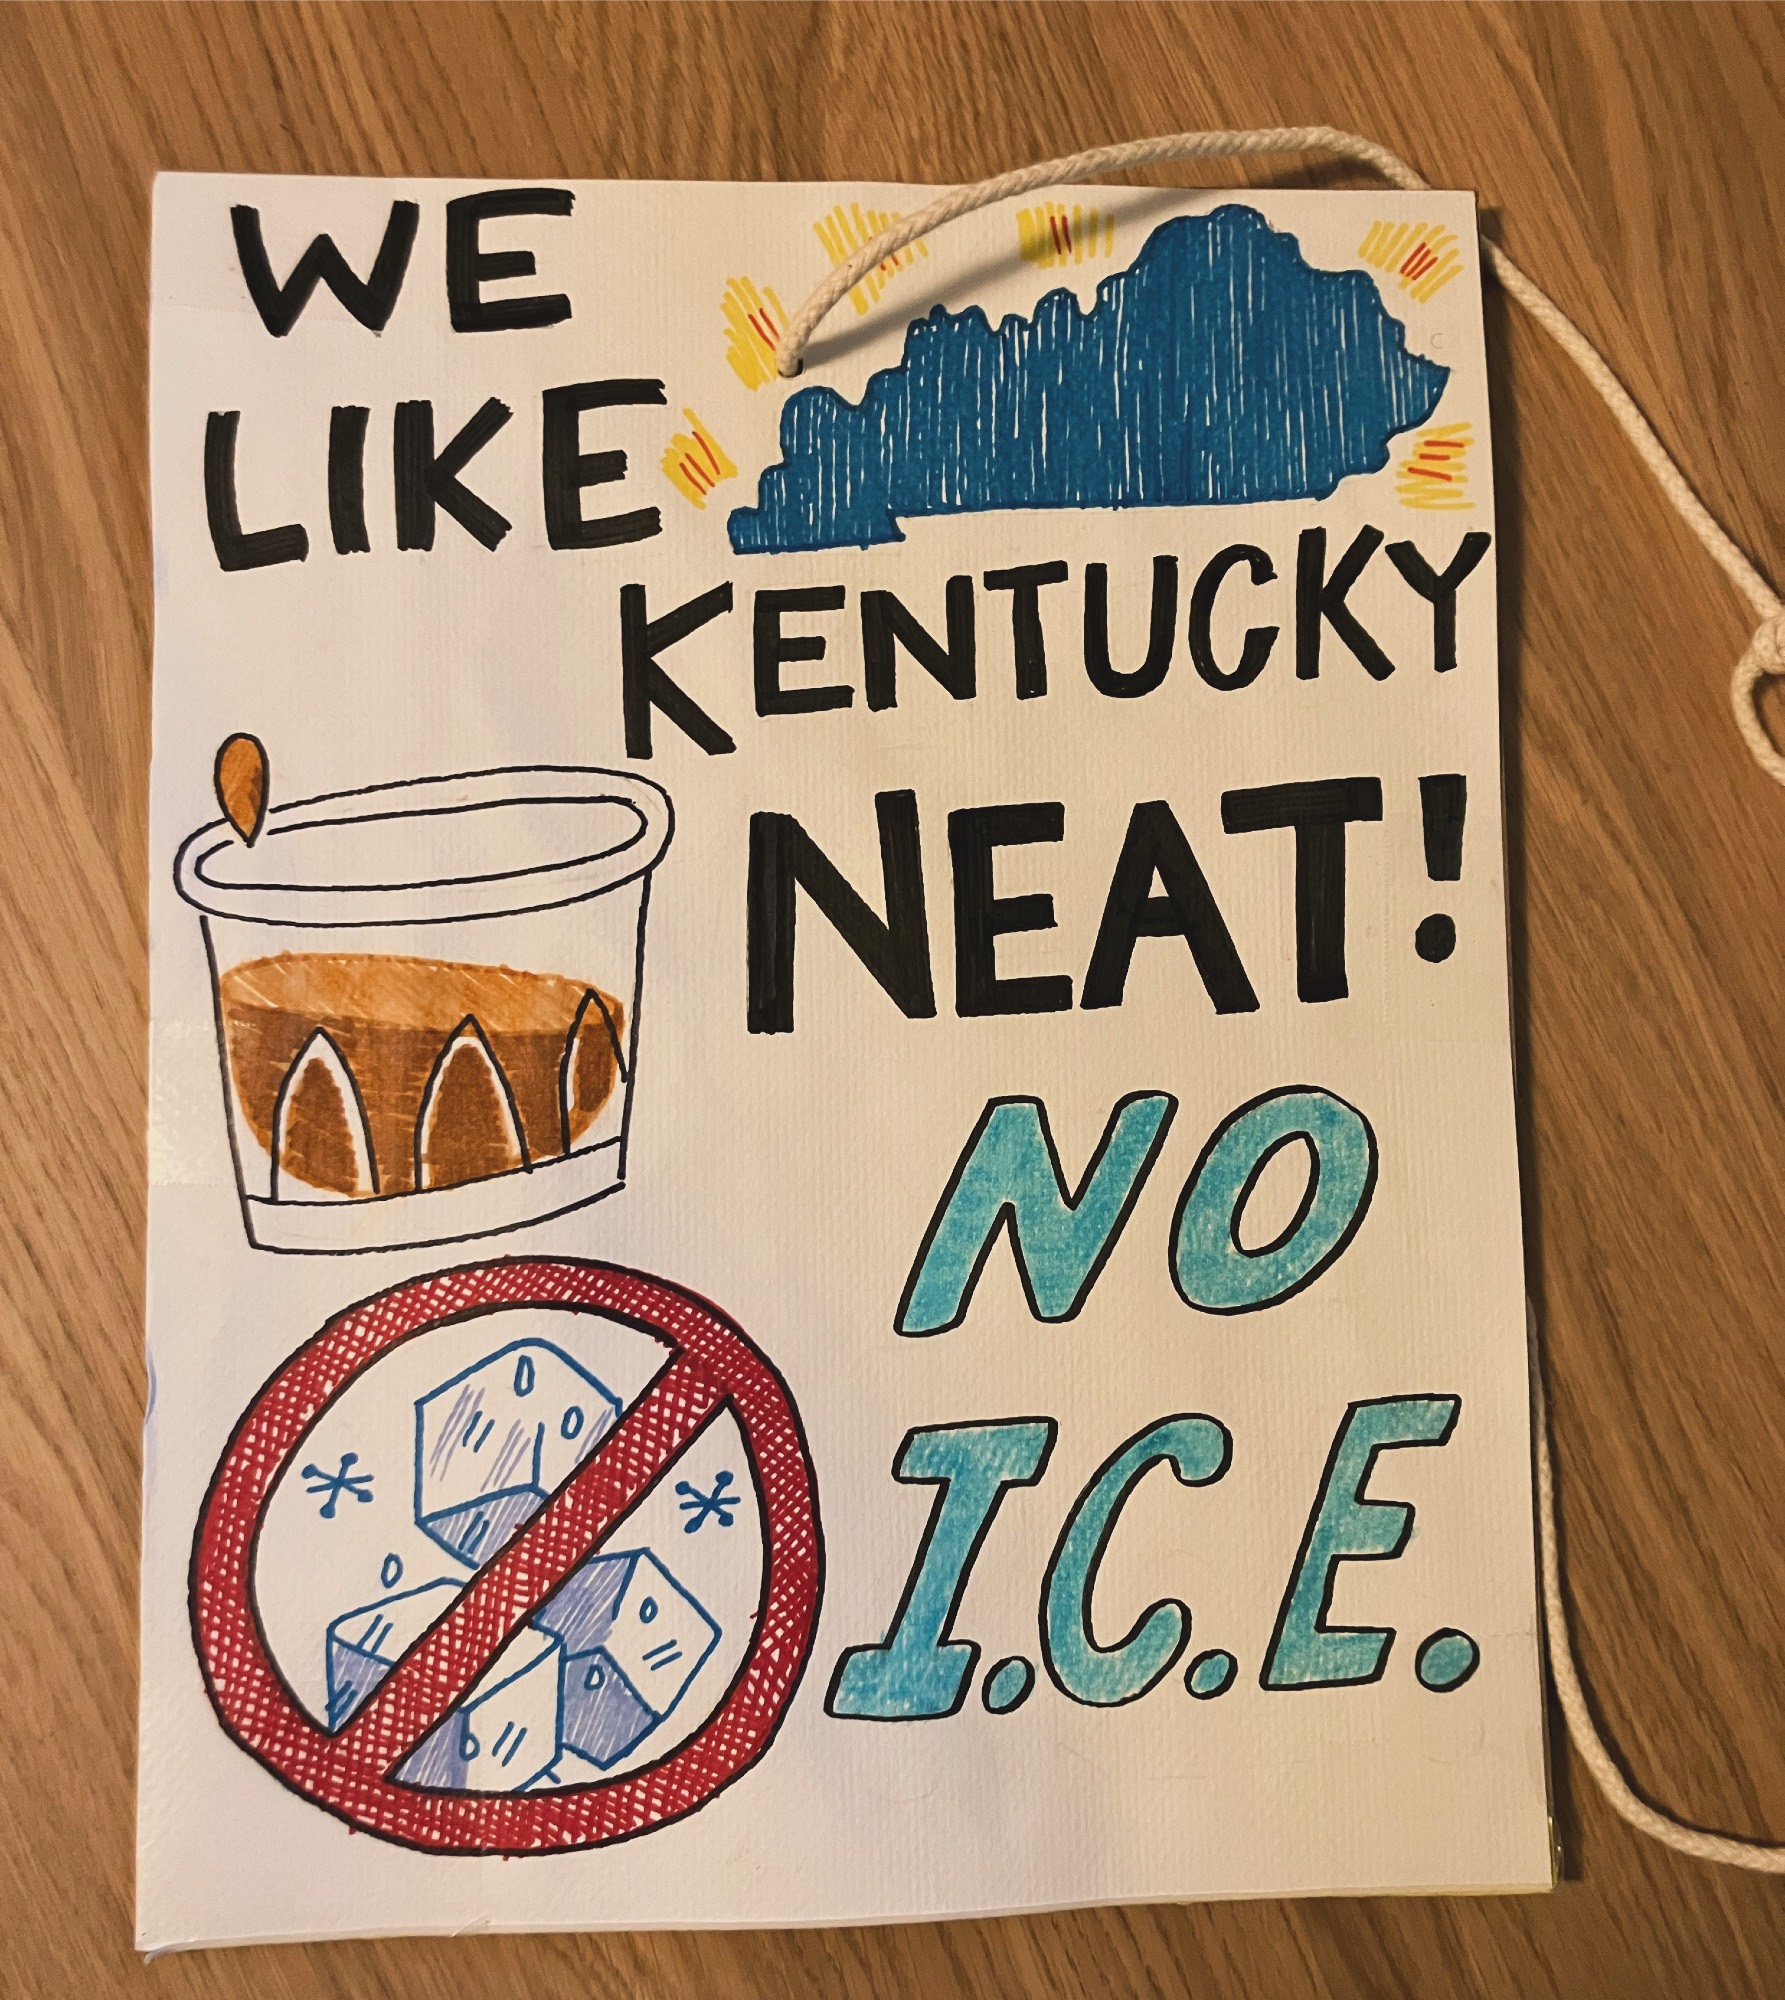 WE
LIKE
KENTUCKY
NEAT!
NO
I.C.E.